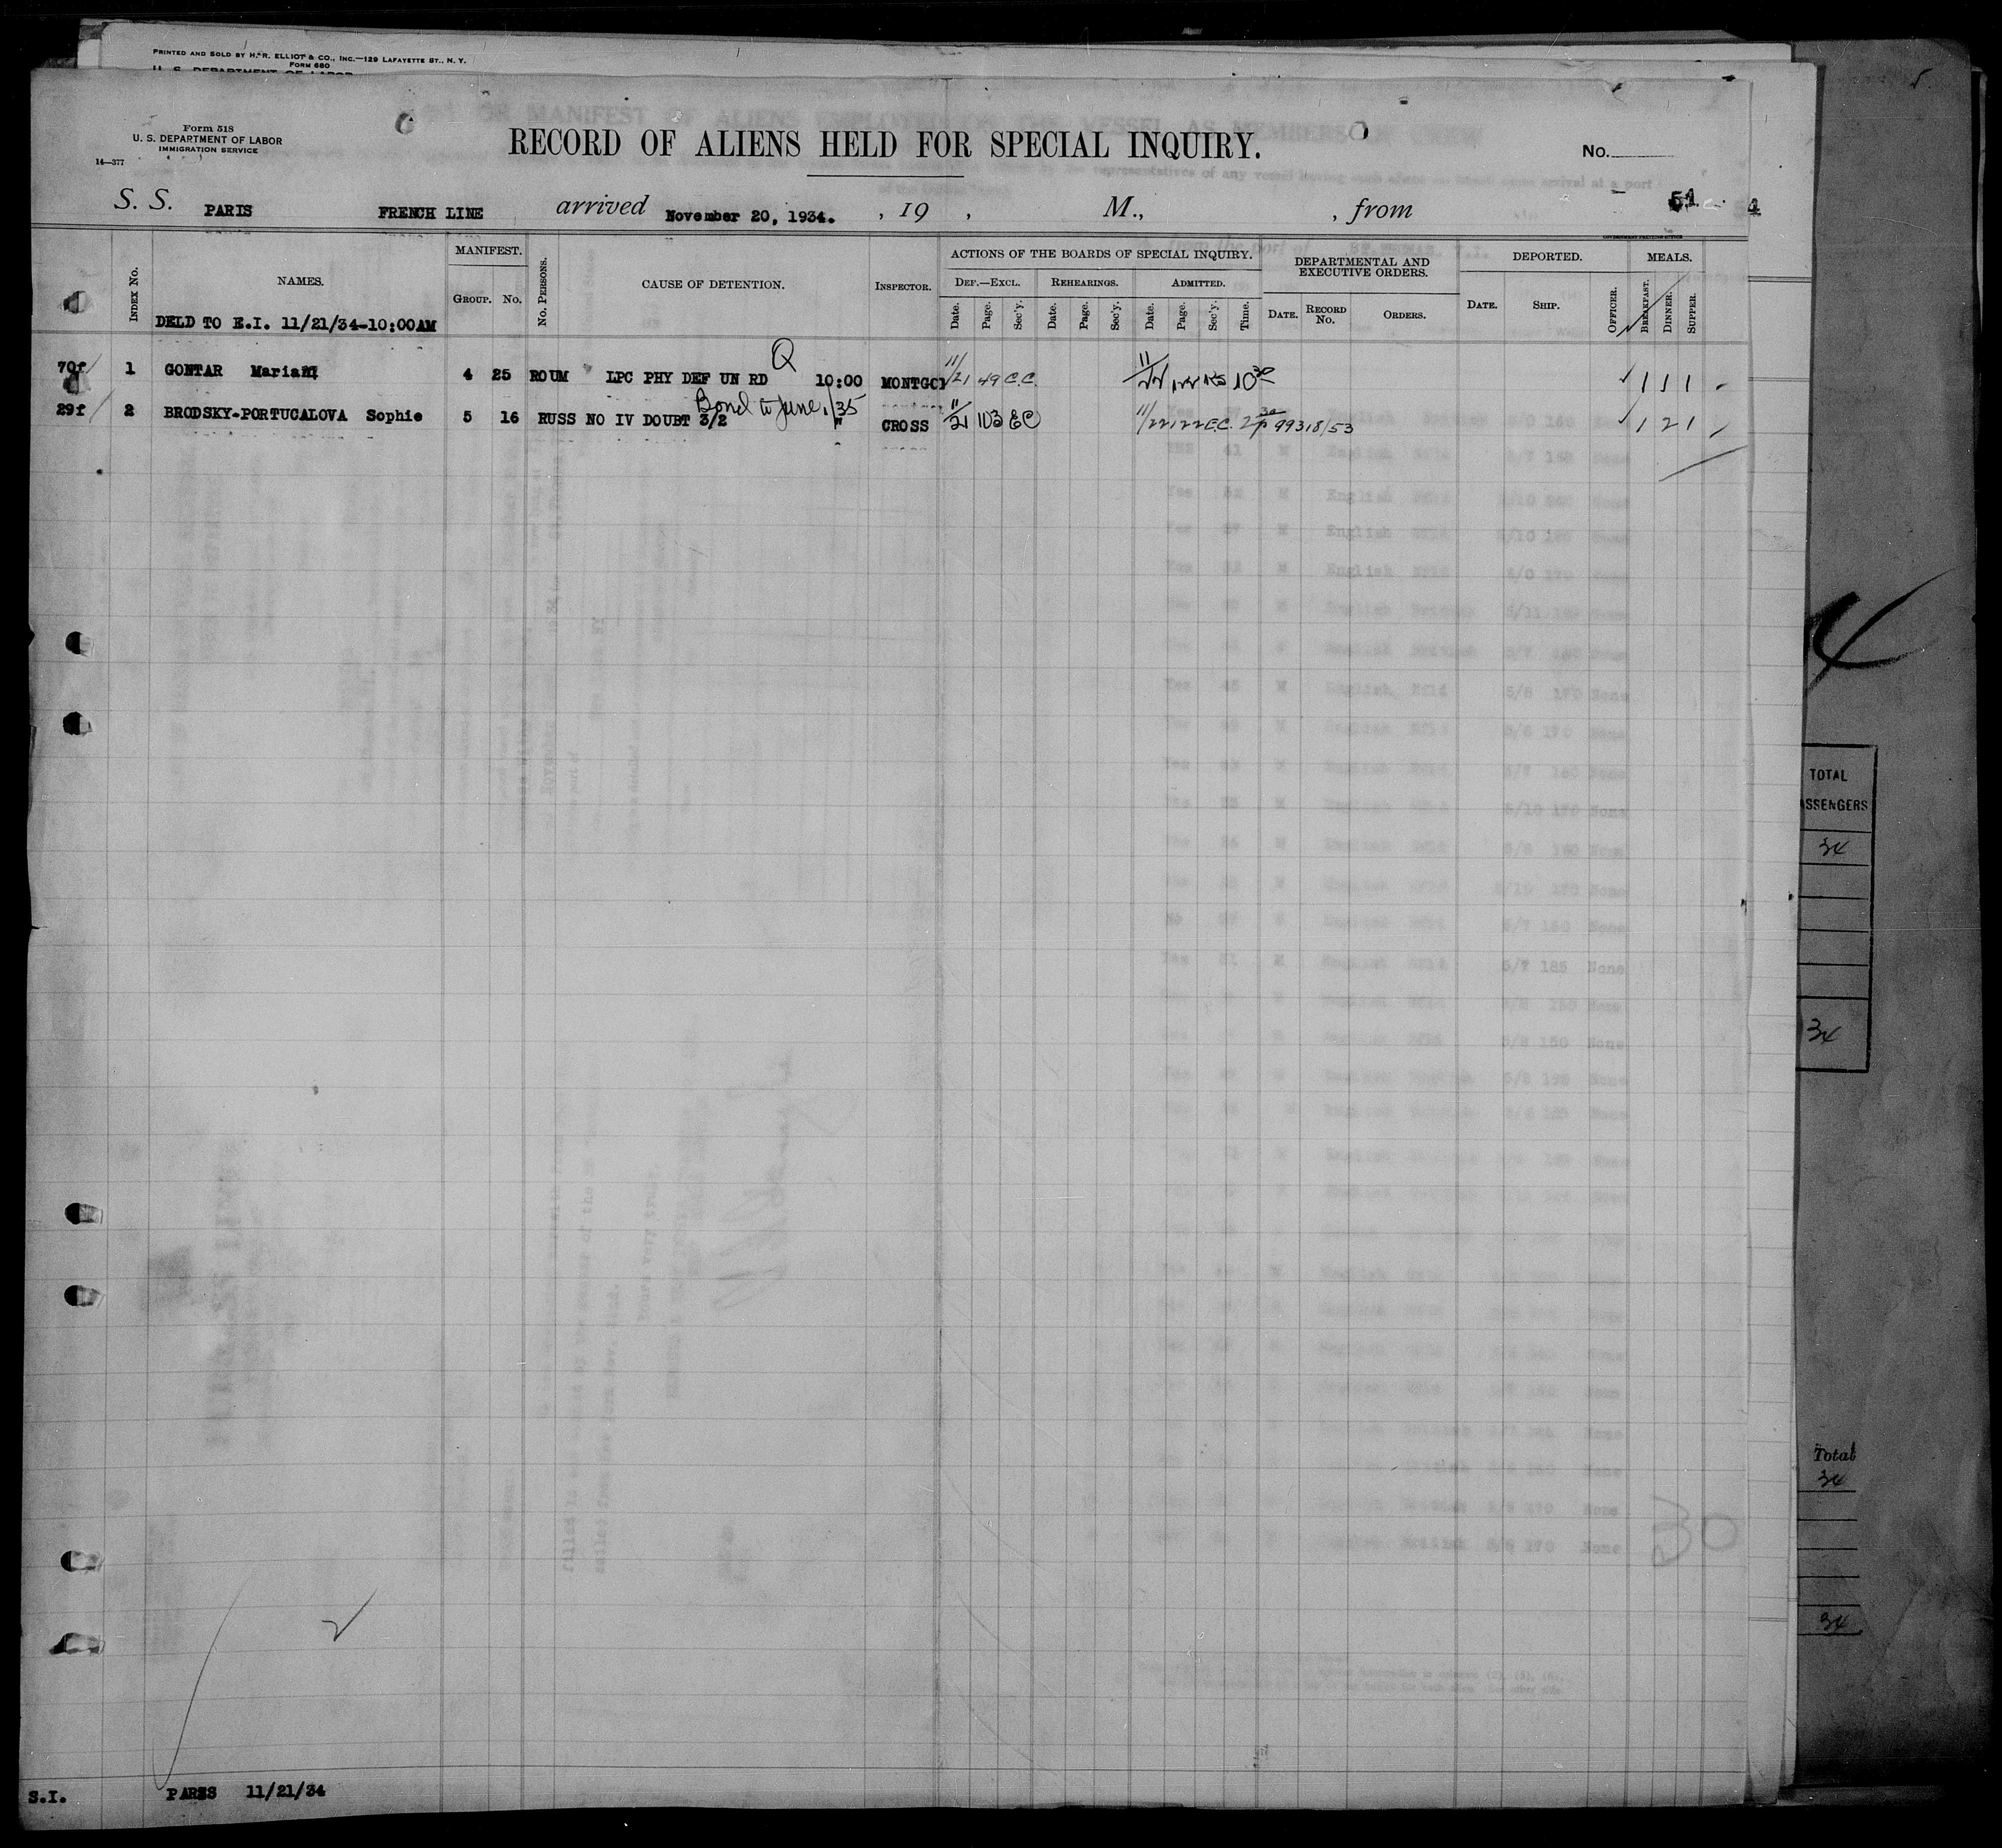 PRINTED AND SOLD BY H. R. ELLIOT & CO., INC.—129 LAFAYETTE ST., N. Y.
FORM 680
U. S. DEPARTMENT OF LABOR
Form 518
U. S. DEPARTMENT OF LABOR
IMMIGRATION SERVICE
14—377
RECORD OF ALIENS HELD FOR SPECIAL INQUIRY.
No.
S. S. PARIS FRENCH LINE arrived November 20, 1934. , 19 , M., , from
INDEX No.
NAMES.
DELD TO E.I. 11/21/34-10:00AM
MANIFEST.
GROUP. No.
No. PERSONS.
CAUSE OF DETENTION.
INSPECTOR.
ACTIONS OF THE BOARDS OF SPECIAL INQUIRY.
DEF.—EXCL. REHEARINGS. ADMITTED.
Date. Page. Sec'y. Date. Page. Sec'y. Date. Page. Sec'y. Time.
DEPARTMENTAL AND
EXECUTIVE ORDERS.
DATE. RECORD No. ORDERS.
DEPORTED.
DATE. SHIP. OFFICER.
MEALS.
BREAKFAST. DINNER. SUPPER.
Q
70f 1 GONTAR Mariam 4 25 ROUM LPC PHY DEF UN RD 10:00 MONTGO 11/21 49 C.C. 10 30 1 1 1
Bond to June 1/35
29f 2 BRODSKY-PORTUCALOVA Sophie 5 16 RUSS NO IV DOUBT 3/2 " CROSS 11/21 103 EC 11/22 122 E.C. 2 30 p 99318/53 1 2 1
4
TOTAL
ASSENGERS
34
34
Total
34
34
30
2
S.I. PARIS 11/21/34